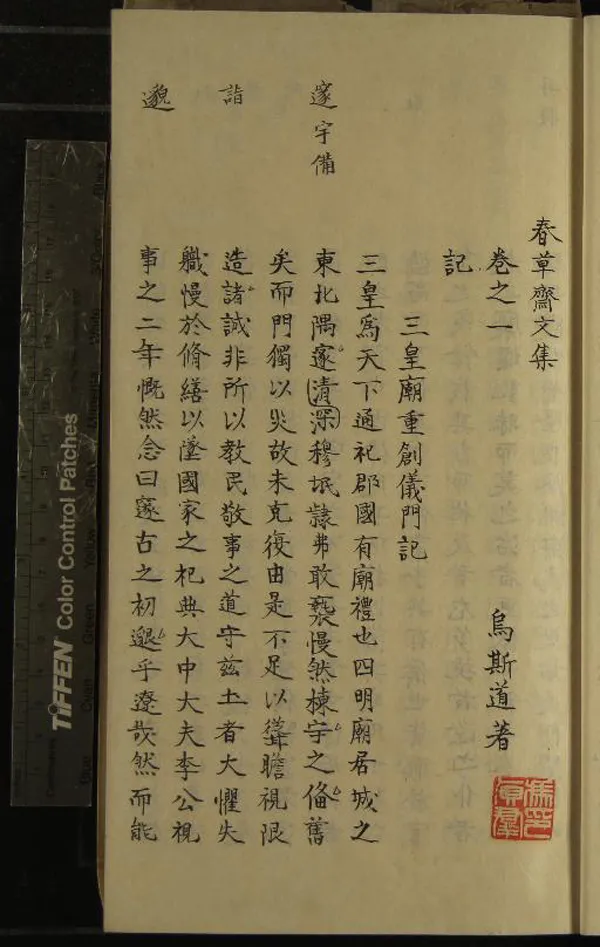 春草齋文集
卷之一 烏斯道著
記
三皇廟重創儀門記
三皇爲天下通祀郡國有廟禮也四明廟居城之
邃宇備
東北隅邃清深穆氓隸弗敢褻慢然棟宇之俻舊
矣而門獨以災故未克復由是不足以聳瞻視限
詣
造諸誠非所以教民敬事之道守兹土者大懼失
職慢於脩繕以墜國家之祀典大中大夫李公視
邈
事之二年慨然念曰邃古之初邈乎遼哉然而能
TIFFEN Color Control Patches